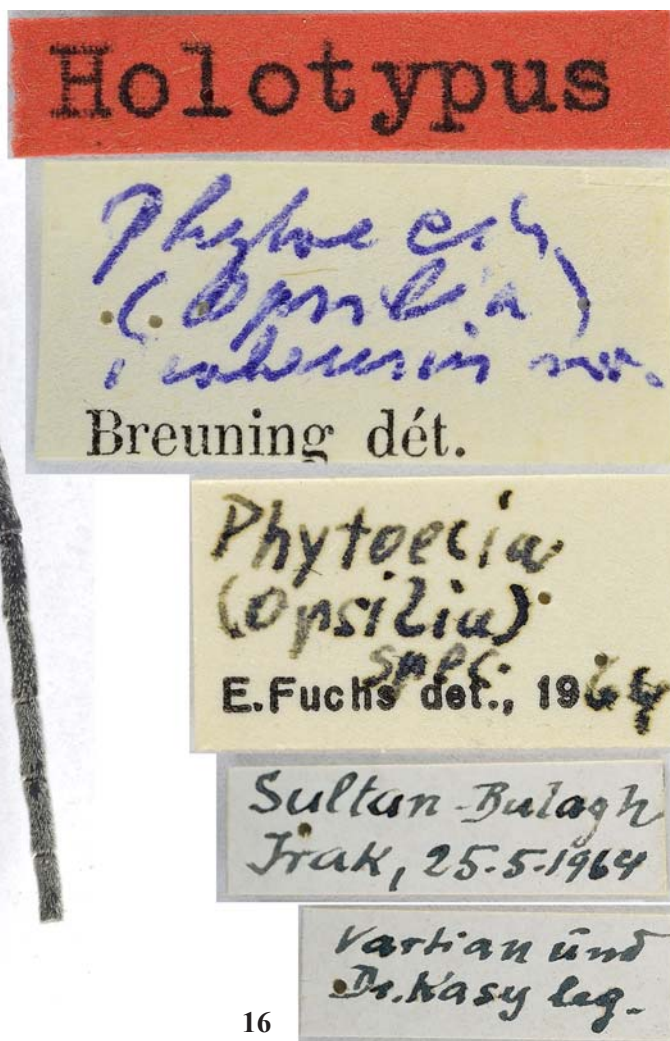 Holotypus
Phytoecia
(Opsilia)
Breuning dét.
Phytoecia
(Opsilia)
spec.
E.Fuchs det., 1964
Sultan-Bulagh
Irak, 25.5.1964
Vartian und
Dr. Kasy leg.
16